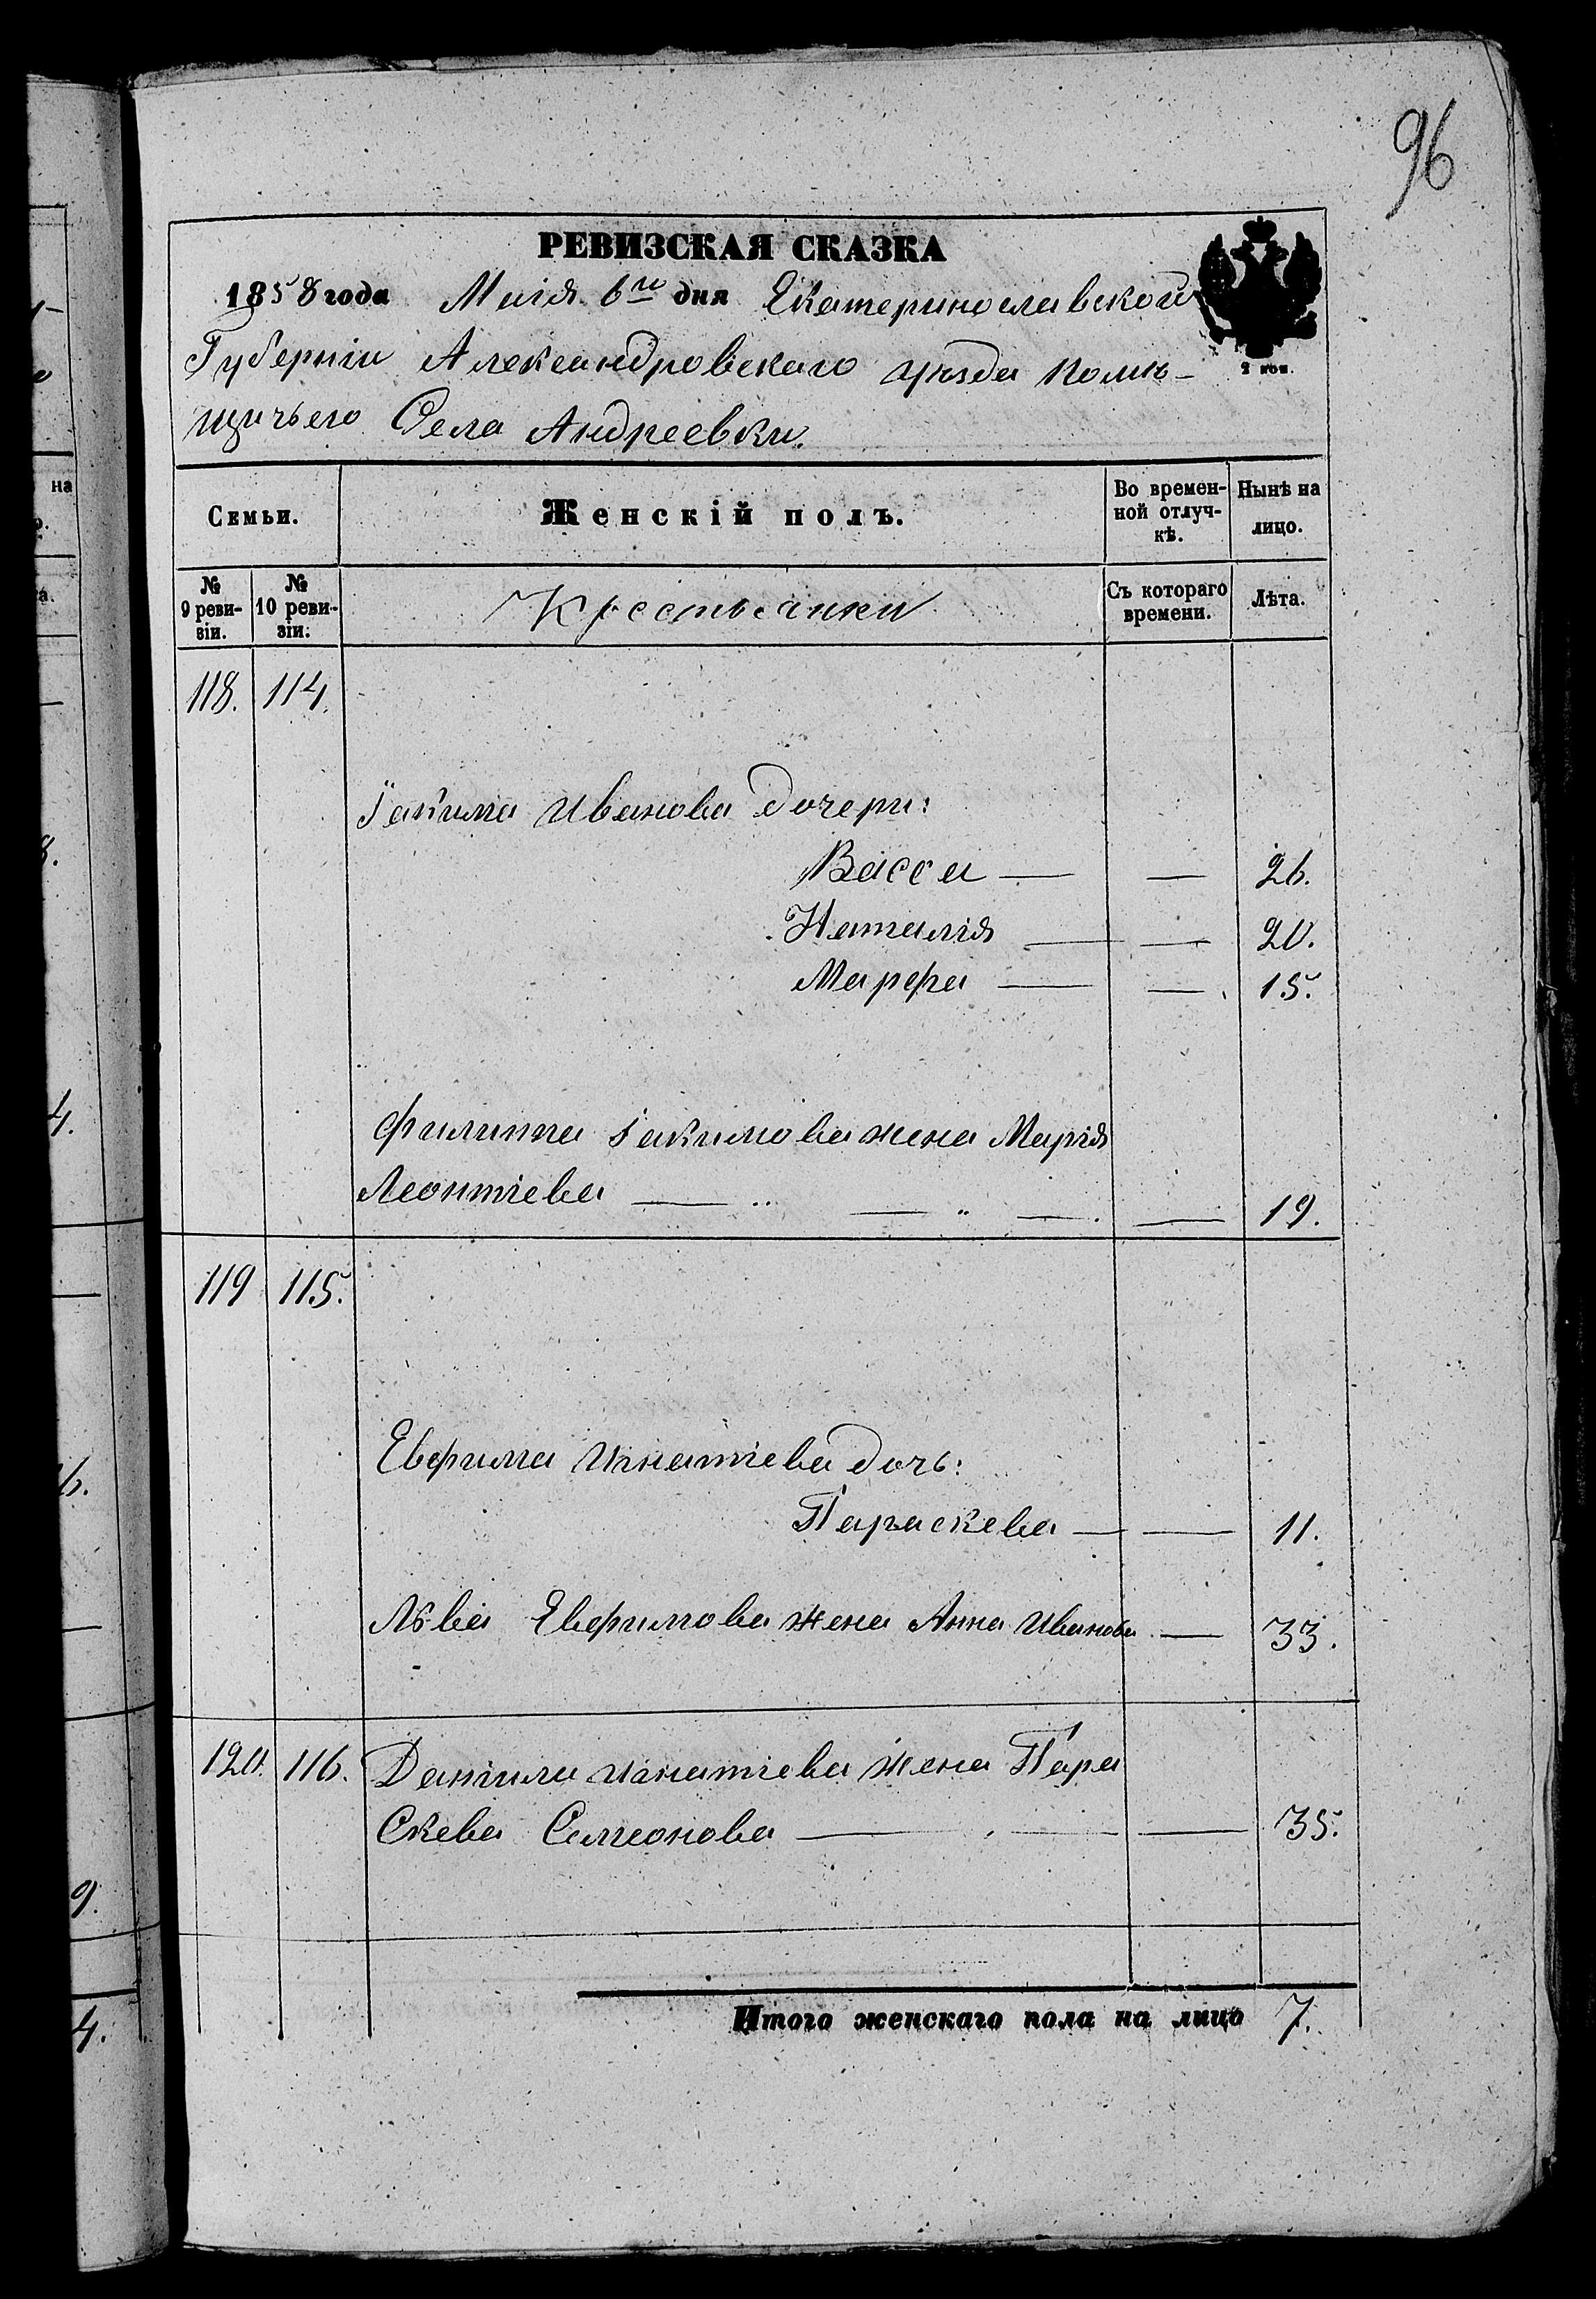 96
РЕВИЗСКАЯ СКАЗКА
1858 года Маія 6го дня Екатеринославской
Губерніи Александровскаго уѣзда помѣ-
щичьего Села Андреевки.
2 коп.
Семьи.
Женскій полъ.
Во времен-
ной отлуч-
кѣ.
Нынѣ на
лицо.
№
9 реви-
зіи.
№
10 реви-
зіи.
Крестьянки
Съ котораго
времени.
Лѣта.
118. 114.
Іакима Иванова дочери:
Васса — — 26.
Наталія — — 20.
Марфа — — 15.
Филиппа Іакимова жена Марія
Леонтіева — „ — „ — — 19.
119 115.
Евфима Игнатіева дочь:
Параскева — — 11.
Льва Евфимова жена Анна Иванова — 33.
120. 116. Даніила Игнатіева жена Пара
Скева Симеонова — — — 35.
Итого женскаго пола на лицо 7.
на
а.
8.
4.
6.
9.
4.